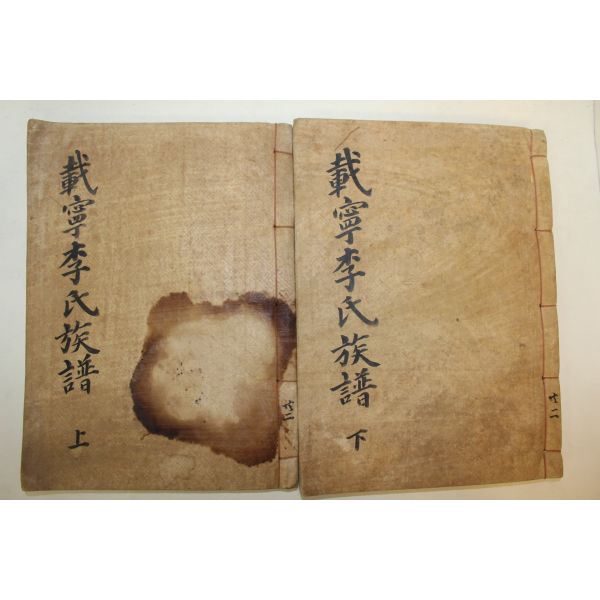 載寧李氏族譜
上
共二
載寧李氏族譜
下
共二